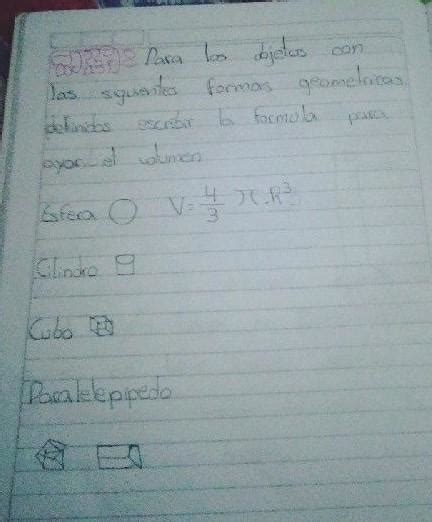 Para los objetos con
las siguentes formas geometricas
definidas escribir la formola para
ayar el volumen
Esfera V=4/3 π.R³
Cilindro
Cubo
Paralelepipedo